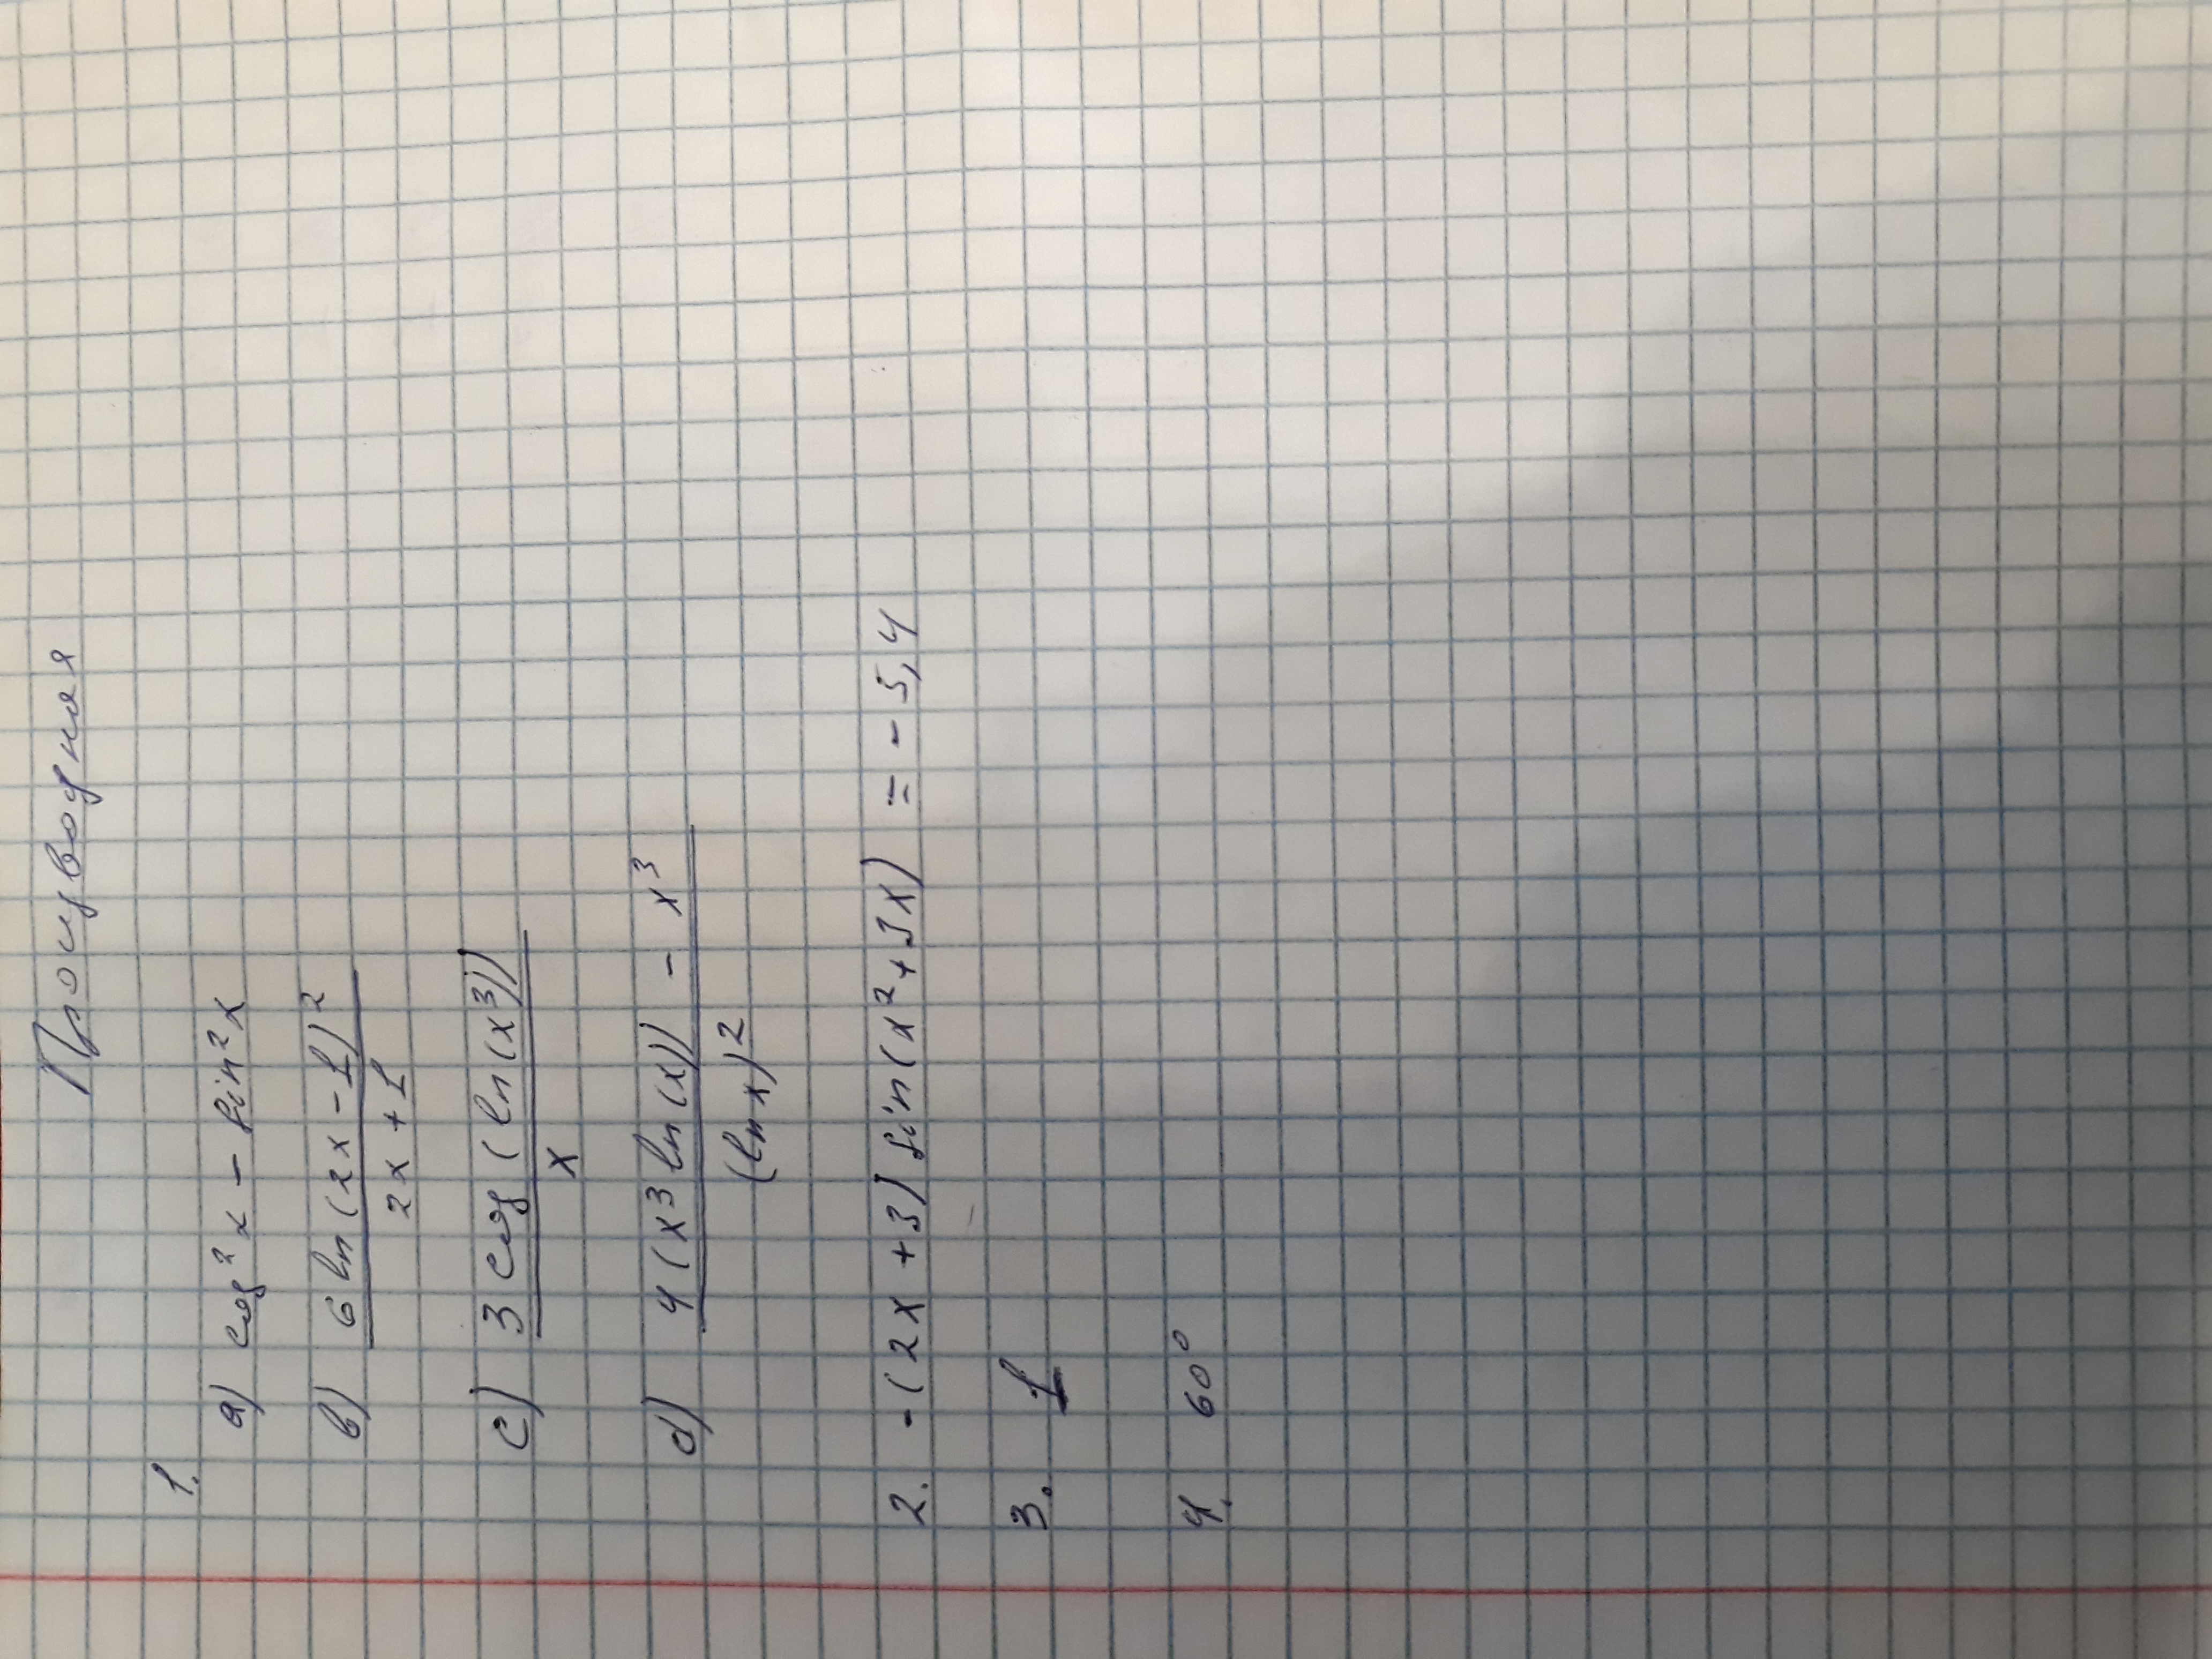 Производная
1.
a) cos² x - sin² x
b) 6 ln (2x - 1)²
2x + 1
c) 3 cos (ln(x³))
x
d) 4 (x³ ln(x)) - x³
(ln x)²
2. -(2x + 3) sin(x² + 3x) = - 5,4
3. 1
4. 60°